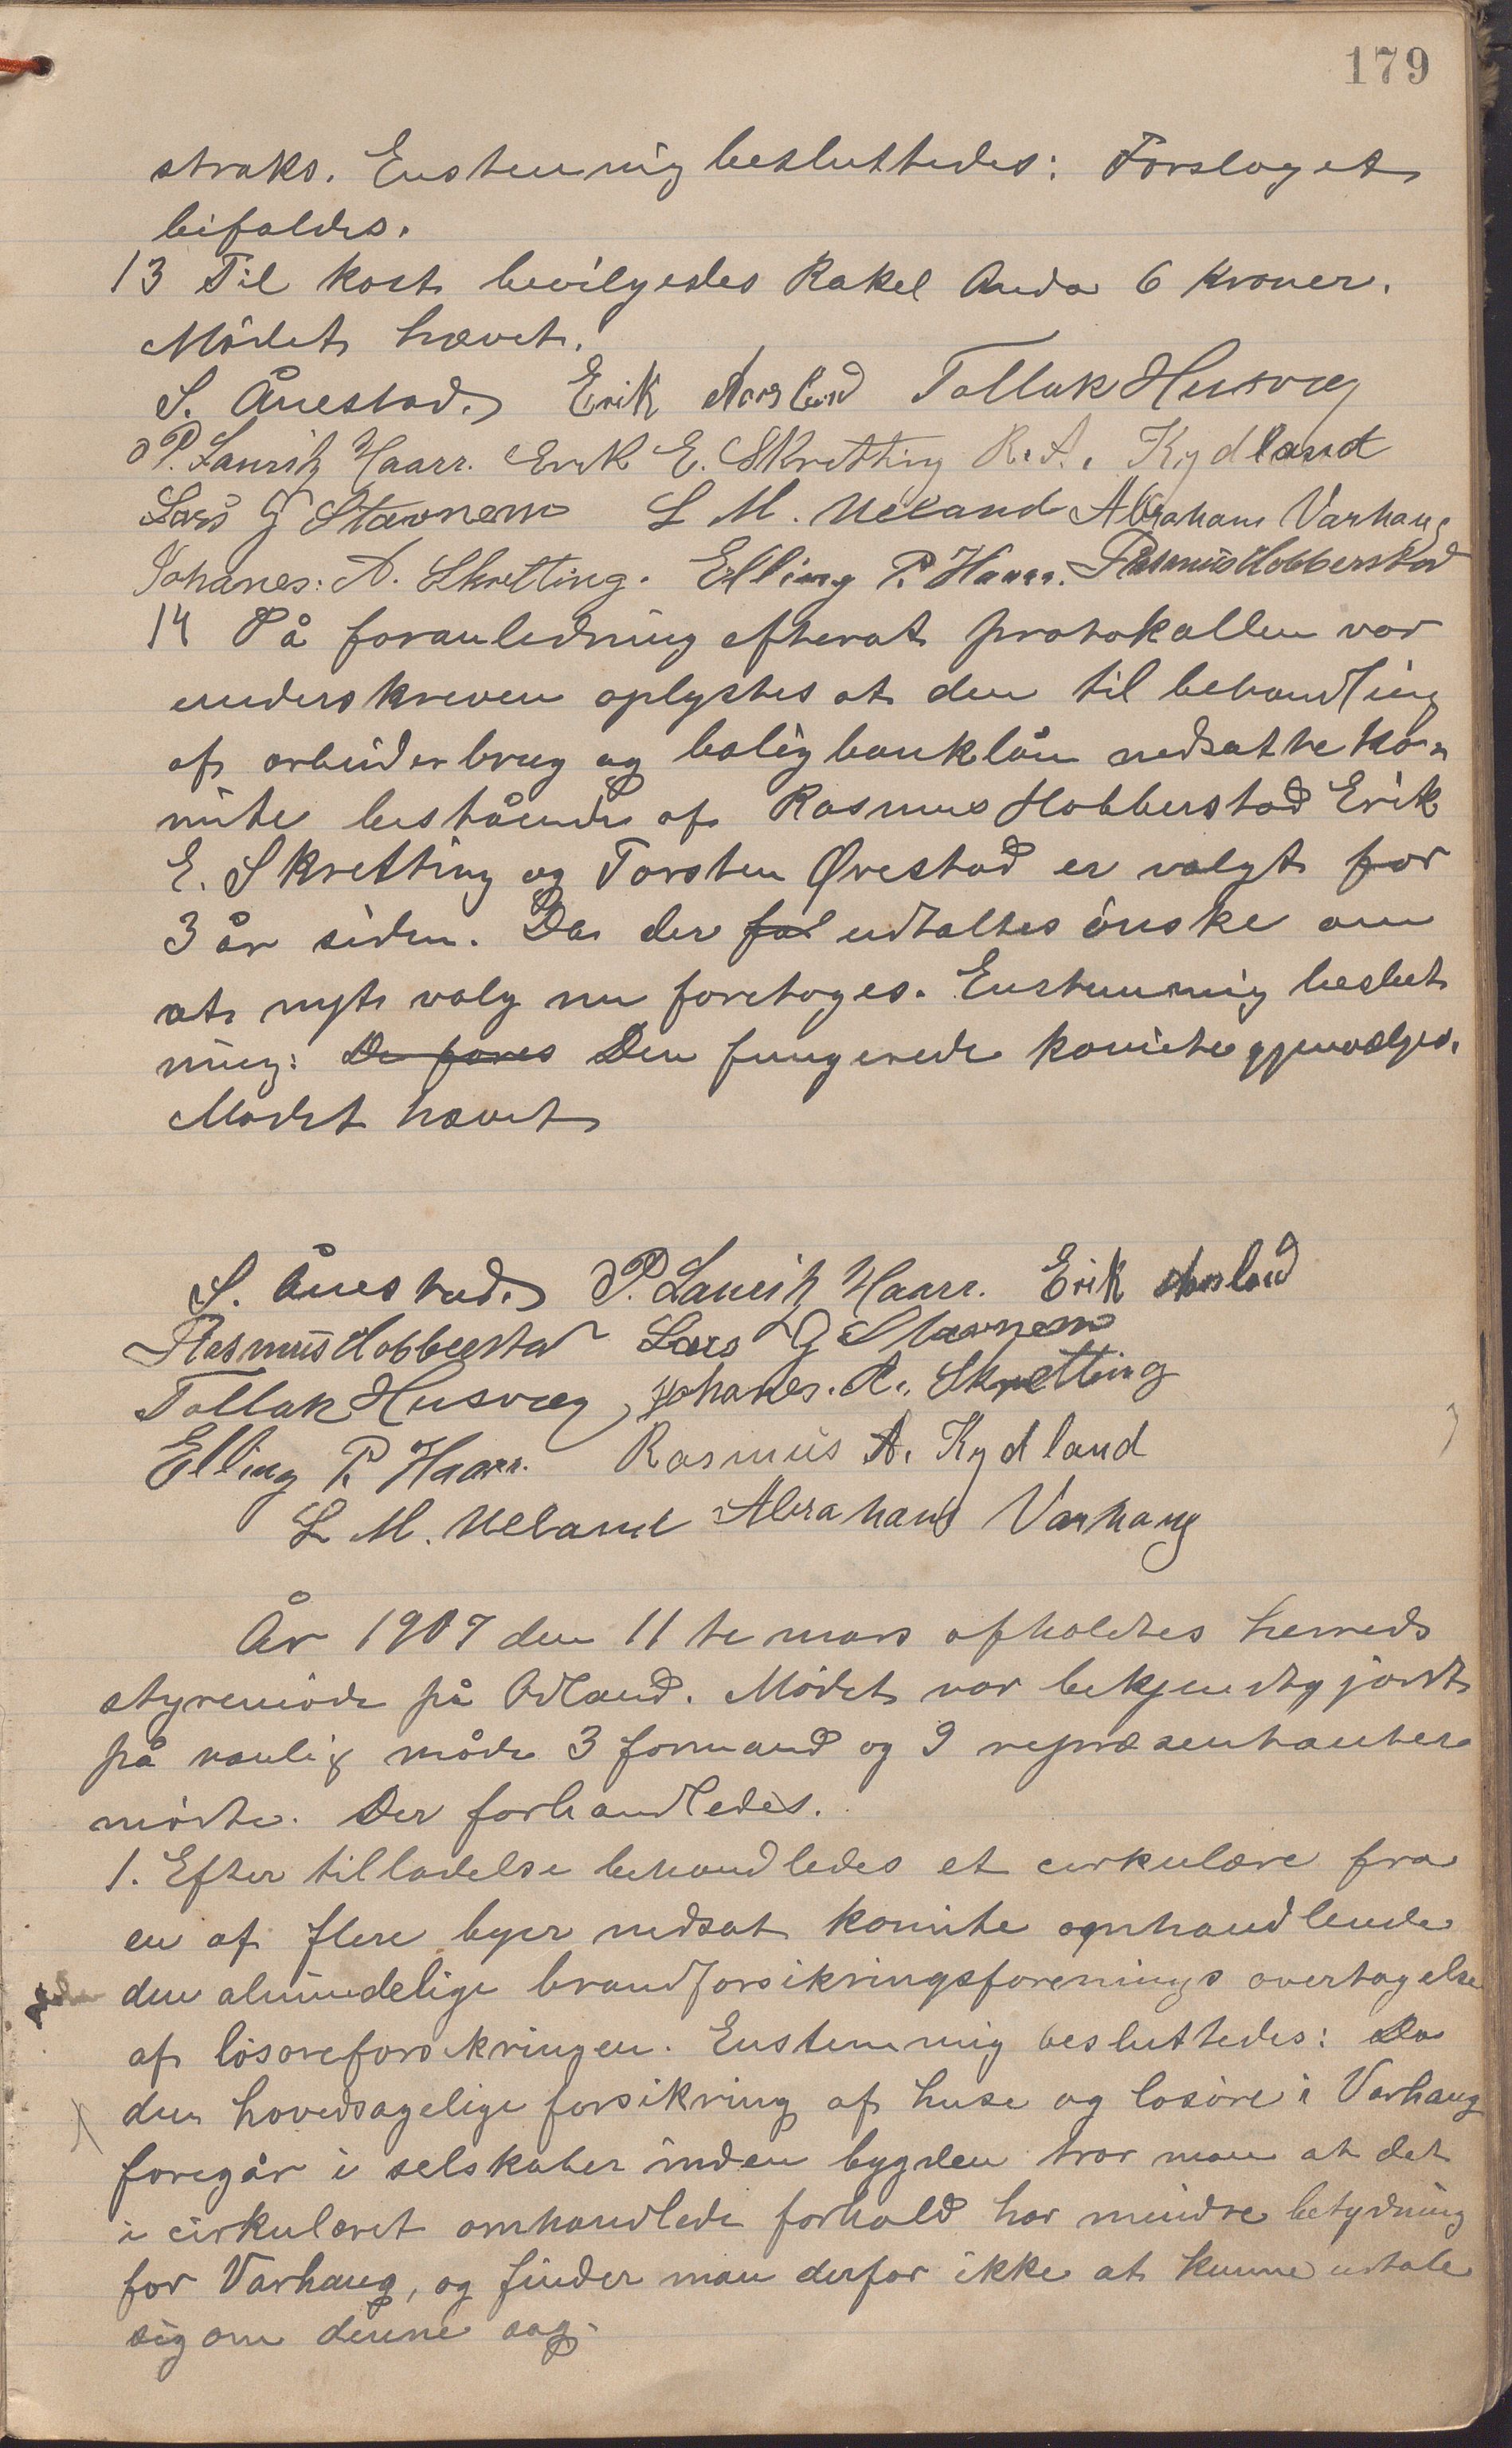 179
straks. Enstemmig besluttedes: Forslaget
bifaldes.
13 Til kost bevilgedes Rakel Anda 6 kroner.
Mödet hævet.
S. Ånestad. Erik Aarsland Tollak Husvæg
P. Lauritz Haarr. Erik E. Skretting R. A. Kydland
Lars G Stavnem L M. Ueland Abraham Varhaug
Johanes. A. Skretting. Elling P. Haarr. Rasmus Hobberstad
14 På foranledning efterat protokallen var
underskreven oplystes at den til behandling
af arbeiderbrug og boligbanklån nedsatte ko-
mite bestående af Rasmus Hobberstad Erik
E. Skretting og Torsten Ørestad er valgt for
3 år siden. Da der fol udtaltes önske om
at nyt valg nu foretoges. Enstemmig beslut
ning: De fores Den fungerede komite gjenvælges.
Mödet hævet
S. Ånestad. P. Lauritz Haarr. Erik Aarsland
Rasmus Hobberstad Lars G Stavnem
Tollak Husvæg Johanes. A. Skretting
Elling P. Haarr. Rasmus A. Kydland
L M. Ueland Abraham Varhaug
År 1907 den 11te mars afholdtes herreds
styremöde på Ødland. Mödet var bekjendtgjordt
på vanlig måde 3 formænd og 9 repræsentanter
mödte. Der forhandledes.
1. Efter tilladelse behandledes et cirkulære fra
en af flere byer nedsat komite omhandlende
den almindelige brandforsikringsforenings overtagelse
af lösöreforsikringen. Enstemmig besluttedes: Da
den hovedsagelige forsikring af huse og losöre i Varhaug
foregår i selskaber inden bygden tror man at det
i cirkulæret omhandlede forhold har mindre betydning
for Varhaug, og finder man derfor ikke at kunne udtale
sig om denne sag.